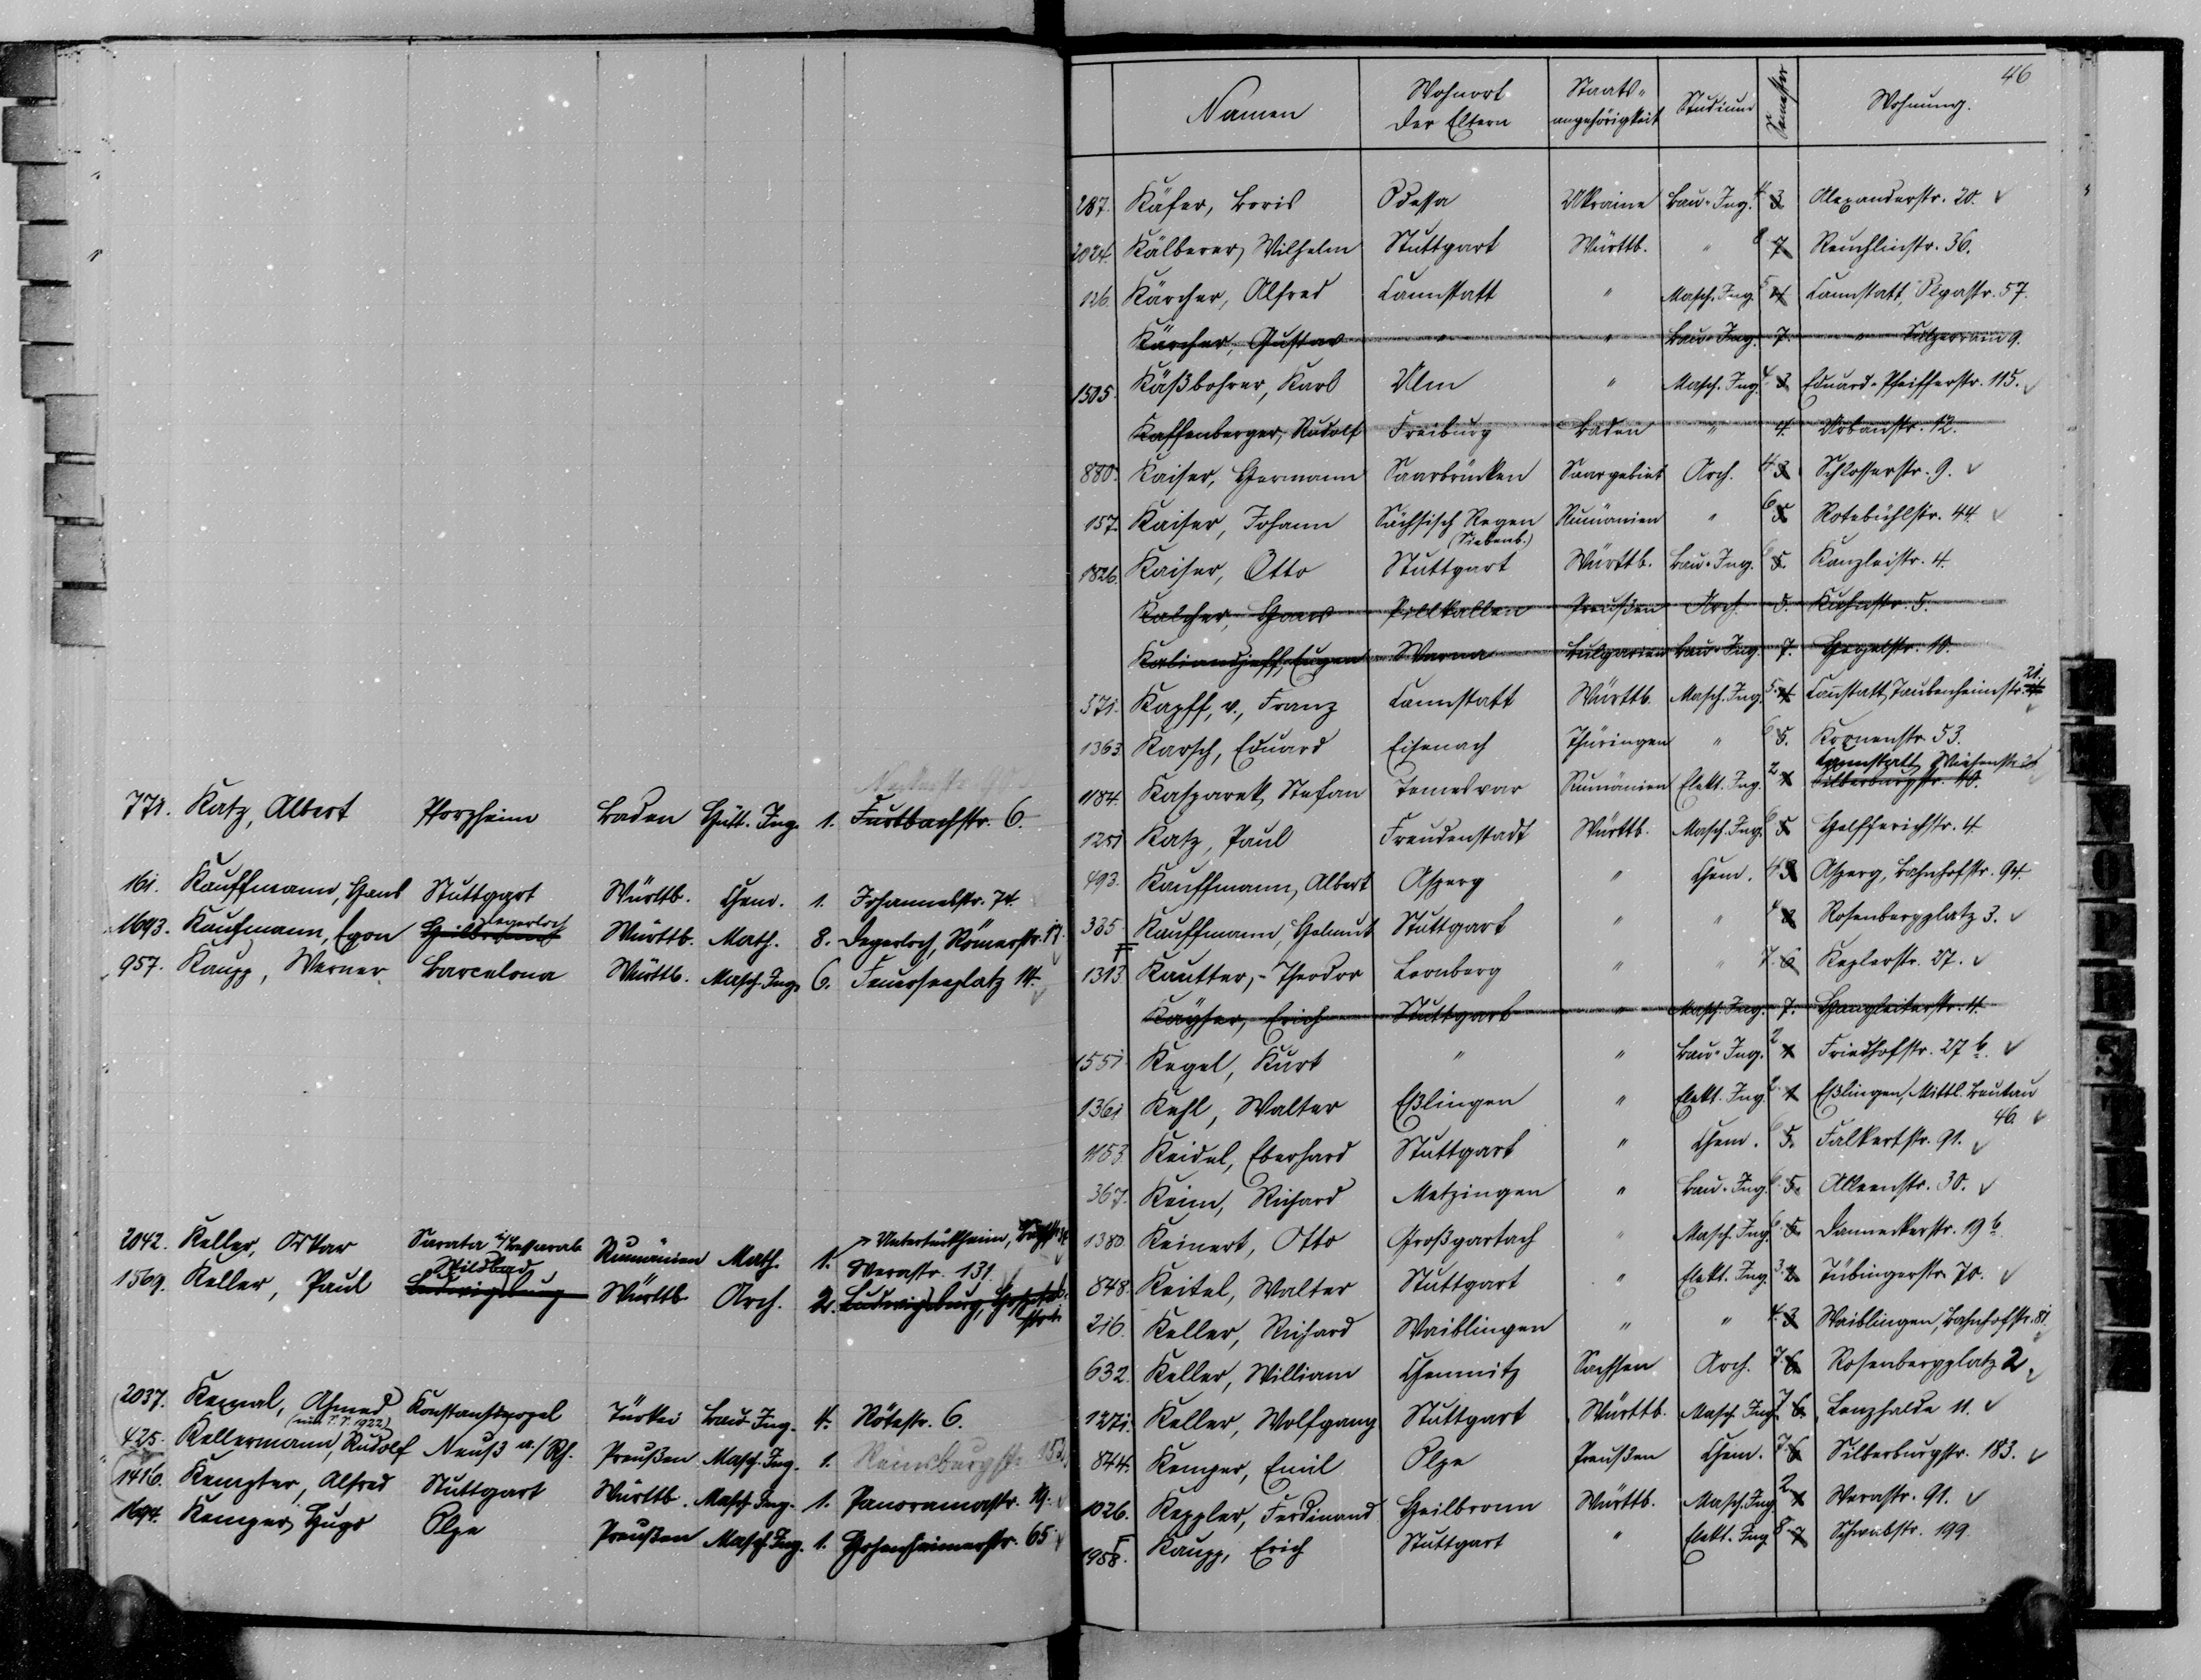 771. Katz, Albert Pforzheim Baden Hütt. Ing. 1. Furtbachstr. 6.
161. Kauffmann, Hans Stuttgart Württb. Chem. 1. Johannesstr. 74.
Degerloch
1693. Kaufmann, Egon Heilbronn Württb. Math. 8. Degerloch, Römerstr. 17.
957. Kaupp, Werner Barcelona Württb. Masch. Ing. 6. Feuerseeplatz 14.
Untertürkheim,
2042. Keller, Oskar Sarata i/Bessarab. Rumänien Math. 1. Werastr. 131.
Wildbad
1569. Keller, Paul Ludwigsburg Württb. Arch. 2. Ludwigsburg,
2037. Kemal, Ahmed Konstantinopel Türkei Bau-Ing. 4. Rötestr. 6.
425. Kellermann, Rudolf Neuß a./Rh. Preußen Masch. Ing. 1. Reinsburgstr. 153.
1416. Kempter, Alfred Stuttgart Württb. Masch. Ing. 1. Panoramastr. 19.
1694. Kemper, Hugo Olpe Preußen Masch. Ing. 1. Hohenheimerstr. 65
46
Namen Wohnort der Eltern Staats-angehörigkeit Studium Semester Wohnung.
287. Käfer, Boris Odessa Ukraine Bau-Ing. 4 3. Alexanderstr. 20.
2024. Kälberer, Wilhelm Stuttgart Württb. " 8 7 Reuchlinstr. 36.
126. Kärcher, Alfred Cannstatt " Masch. Ing. 5 4 Cannstatt, Olgastr. 57.
Kärcher, Gustav " " Bau-Ing. 7. " Sulzerrain 9.
1505. Käßbohrer, Karl Ulm " Masch. Ing. 4. 3 Eduard-Pfeifferstr. 115.
Kaffenberger, Rudolf Freiburg Baden " 4. Urbanstr. 12.
880. Kaiser, Hermann Saarbrücken Saargebiet Arch. 4 3 Schlosserstr. 9.
157. Kaiser, Johann Sächsisch Regen Rumänien " 6 5 Rotebühlstr. 44
(Siebenb.)
1826. Kaiser, Otto Stuttgart Württb. Bau-Ing. 6 5. Kanzleistr. 4.
Kalcher, Hans Pillkallen Preußen Arch. 5.
Kaliandjeff, Eugen Warna Bulgarien Bau-Ing. 7. Hegelstr. 10.
571. Kapff, v., Franz Cannstatt Württb. Masch. Ing. 5. 4 Cannstatt, Taubenheimstr. 21.
1363 Karsch, Eduard Eisenach Thüringen " 6 5. Kronenstr. 53.
Cannstatt, Wiesenstr.
1184. Kasparek, Stefan Temesvar Rumänien Elekt. Ing. 2 1 Silberburgstr. 40.
1251 Katz, Paul Freudenstadt Württb. Masch. Ing. 6 5 Helfferichstr. 4
493. Kauffmann, Albert Asperg " Chem. 4. 3 Asperg, Bahnhofstr. 94
335. Kauffmann, Helmut Stuttgart " " 4 Rosenbergplatz 3.
1313. Kautter, Theodor Leonberg " " 7. 6 Keplerstr. 27.
Kayser, Erich Stuttgart " Masch. Ing. 7.
1551 Kegel, Kurt " " Bau-Ing. 2 1 Friedhofstr. 27 b.
1361 Kehl, Walter Eßlingen " Elekt. Ing. 2. 1 Eßlingen, Mittl. Beutau
46.
1153. Keidel, Eberhard Stuttgart " Chem. 6 5. Falkertstr. 91.
367. Keim, Richard Metzingen " Bau-Ing. 6. 5. Alleenstr. 30.
1380 Keinert, Otto Großgartach " Masch. Ing. 6. 5. Danneckerstr. 19 b
848. Keitel, Walter Stuttgart " Elekt. Ing. 3. 2 Tübingerstr. 70.
216. Keller, Richard Waiblingen " " 4. 3 Waiblingen, Bahnhofstr. 81.
632. Keller, William Chemnitz Sachsen Arch. 7. 6. Rosenbergplatz 2
1271. Keller, Wolfgang Stuttgart Württb. Masch. Ing. 7 6. Lenzhalde 11.
844. Kemper, Emil Olpe Preußen Chem. 7. 6 Silberburgstr. 183.
1026. Keppler, Ferdinand Heilbronn Württb. Masch. Ing. 2 1 Werastr. 91.
1958. Kaupp, Erich Stuttgart " Elekt. Ing. 8 7 Schwabstr. 199.